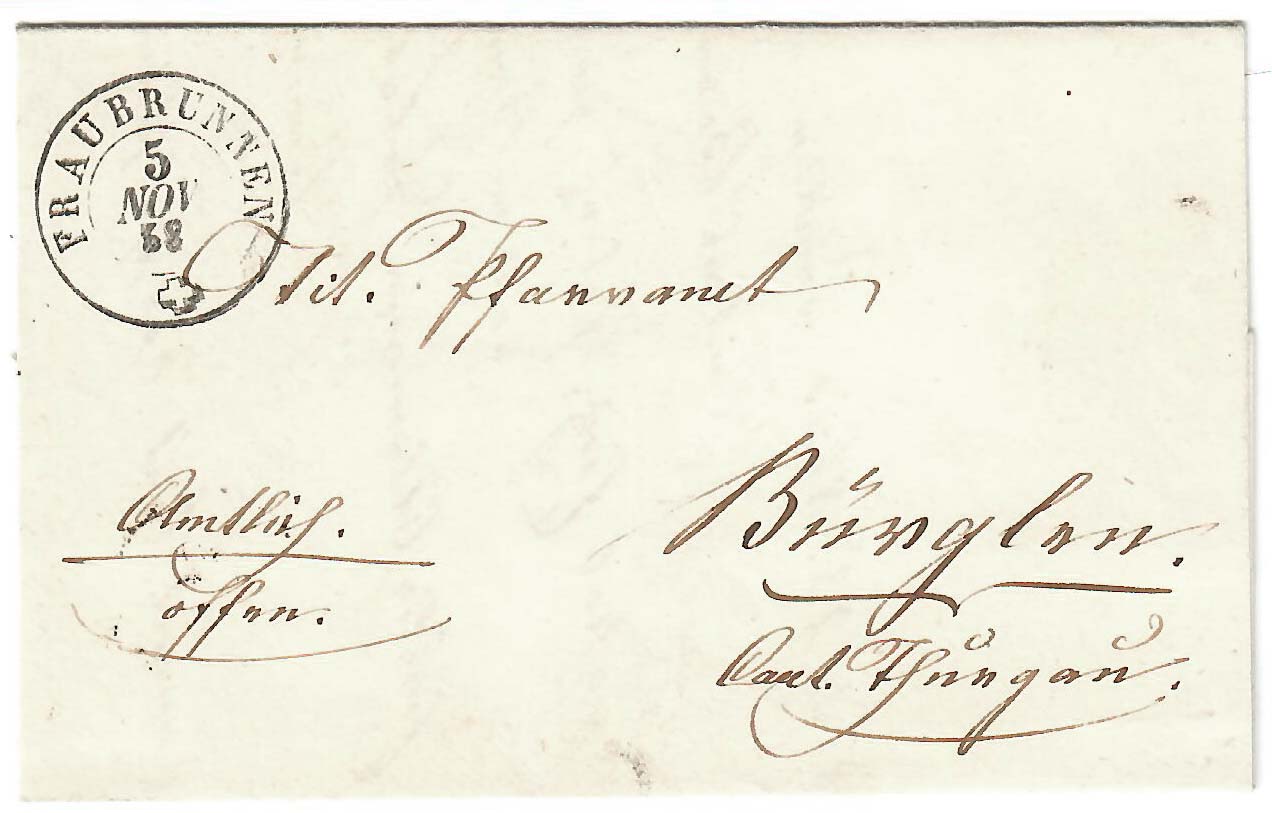 FRAUBRUNNEN
5
NOV
58
Tit. Pfarramt
Bürglen.
Cant. Thurgau.
Amtlich.
offen.